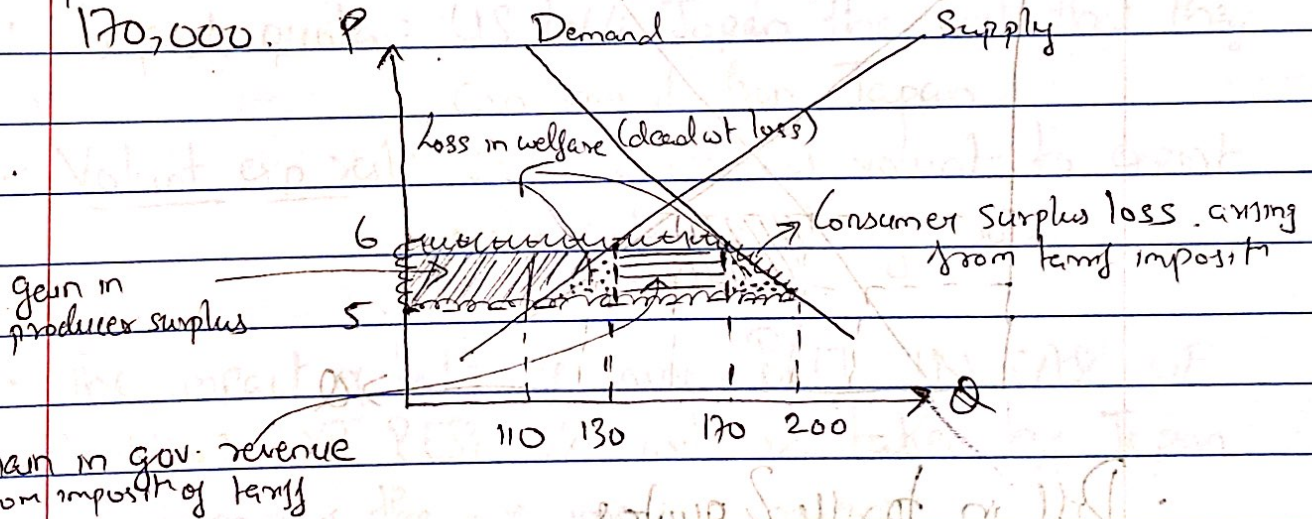 170,000. P Demand Supply
Loss in welfare (dead wt loss)
6 Consumer surplus loss. arising
from tariff imposit
gain in
producer surplus 5
Q
110 130 170 200
ain in gov. revenue
om imposit of tariff